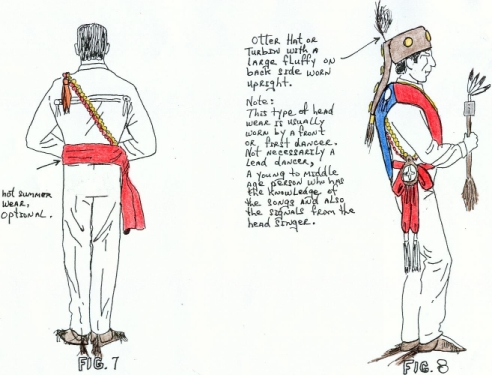 Otter Hat or
Turbin with a
large fluffy on
back side worn
upright.
Note:
This type of head
wear is usually
worn by a front
or first dancer.
Not necessarily a
lead dancer,
A young to middle
age person who has
the knowledge of
the songs and also
the signals from the
head singer.
hot summer
wear,
optional.
FIG. 7
FIG. 8